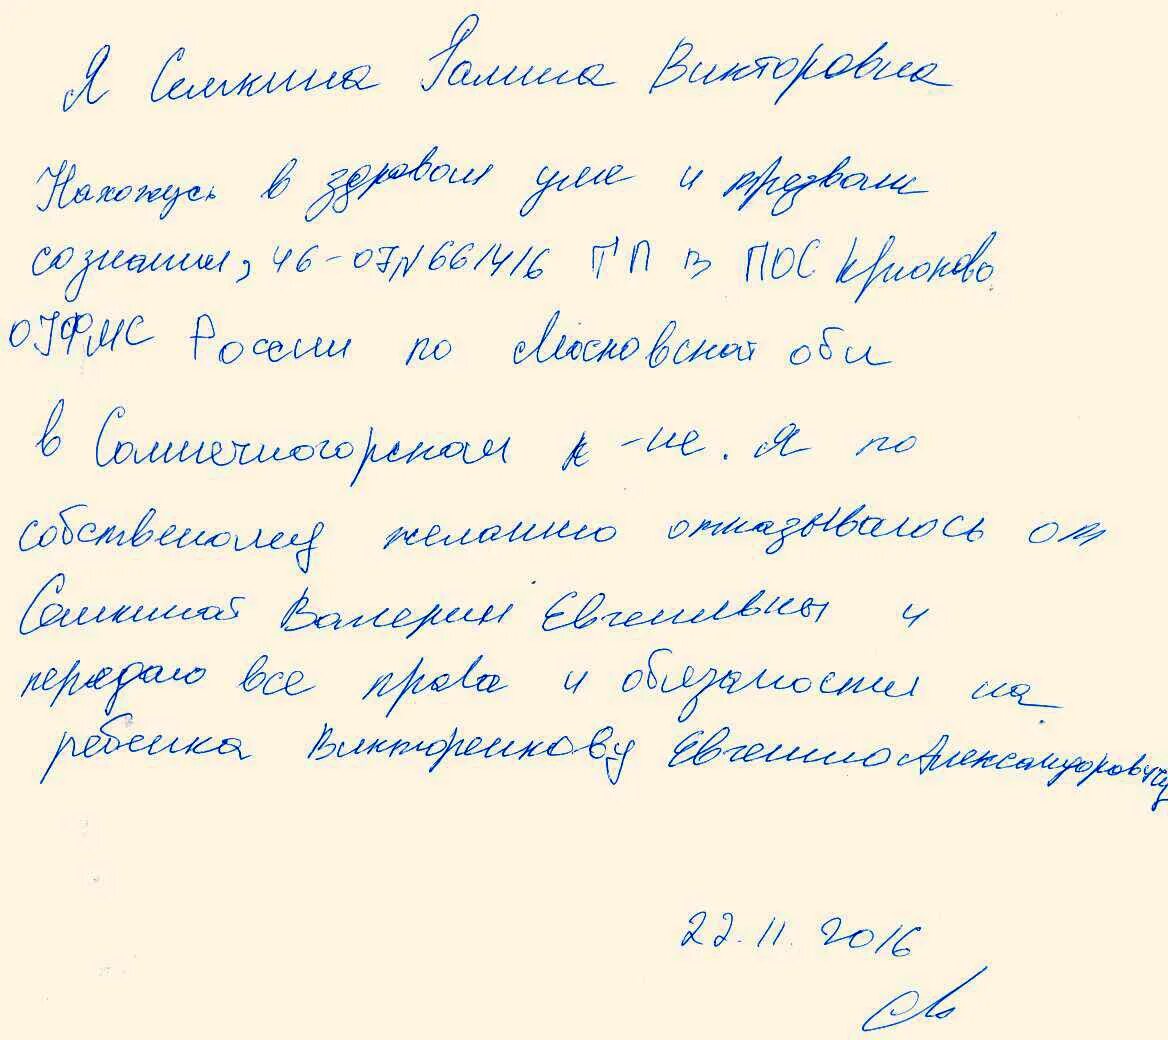 Я Семкина Галина Викторовна
Нахожусь в здравом уме и трезвом
сознании, 46-07 N 661416 ТП в ПОС Крюково
ОУФМС России по Московской обл
в Солнечногорском р-не. Я по
собственому желанию отказываюсь от
Семкиной Валерии Евгенивны и
передаю все права и обязаности на
ребенка Викторенкову Евгению Александровичу
22.11.2016